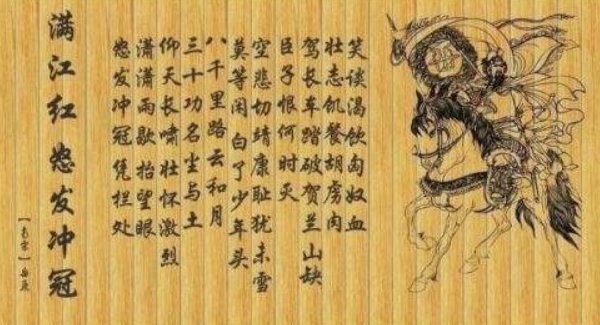 满江红 怒发冲冠
【南宋】岳飞
怒发冲冠凭栏处
潇潇雨歇抬望眼
仰天长啸壮怀激烈
三十功名尘与土
八千里路云和月
莫等闲白了少年头
空悲切靖康耻犹未雪
臣子恨何时灭
驾长车踏破贺兰山缺
壮志饥餐胡虏肉
笑谈渴饮匈奴血